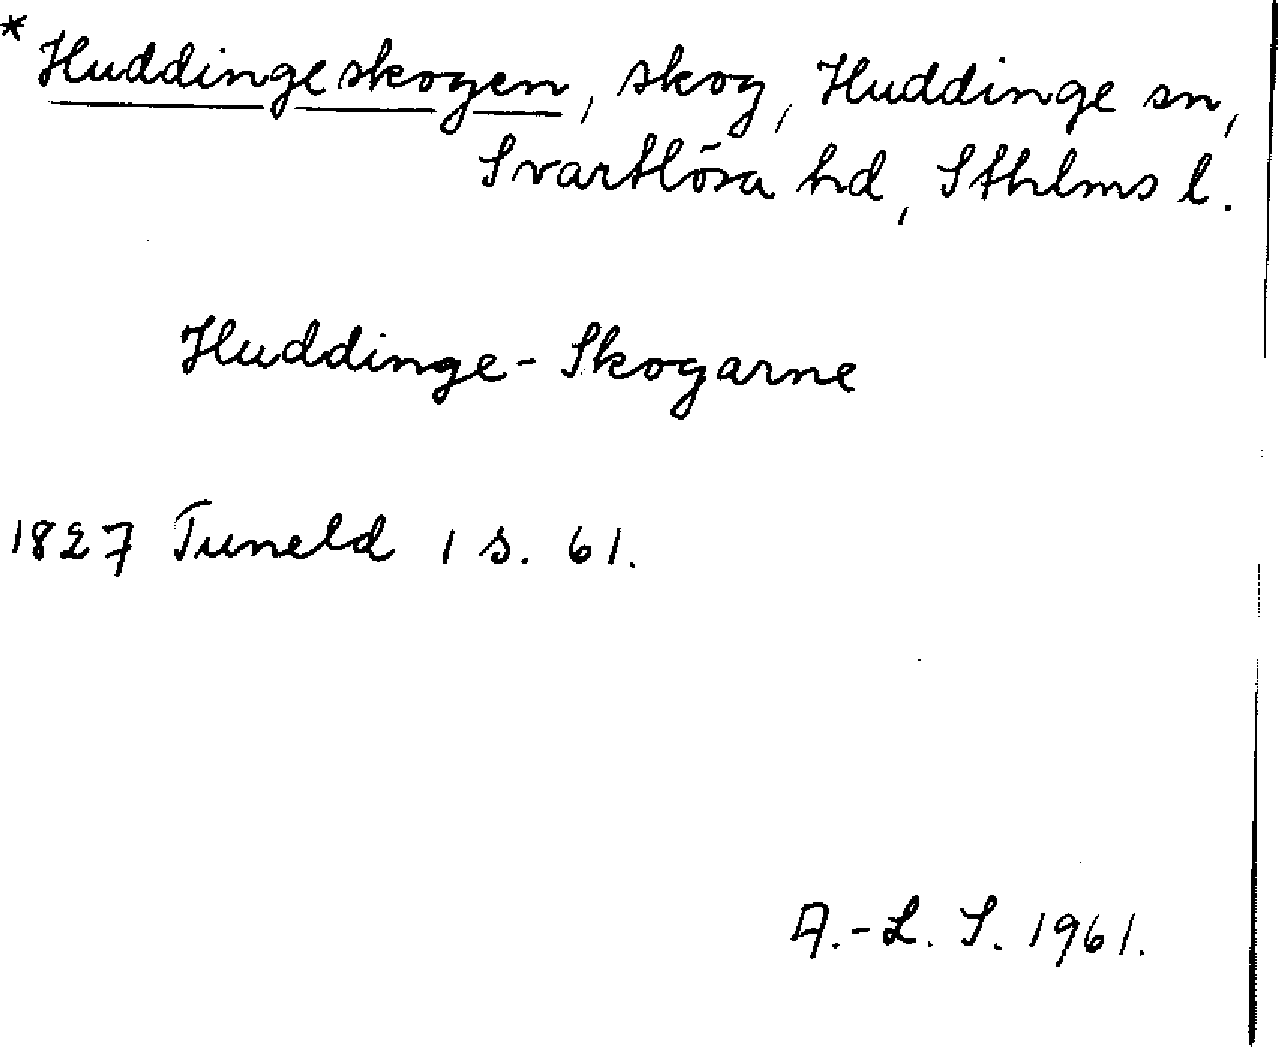 * Huddingeskogen, skog, Huddinge sn,
Svartlösa hd, Sthlms l.
Huddinge-Skogarne
1827 Tuneld 1 s. 61.
A.-L. S. 1961.